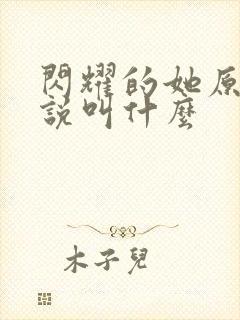 閃耀的她原
說叫什麼
木子兒